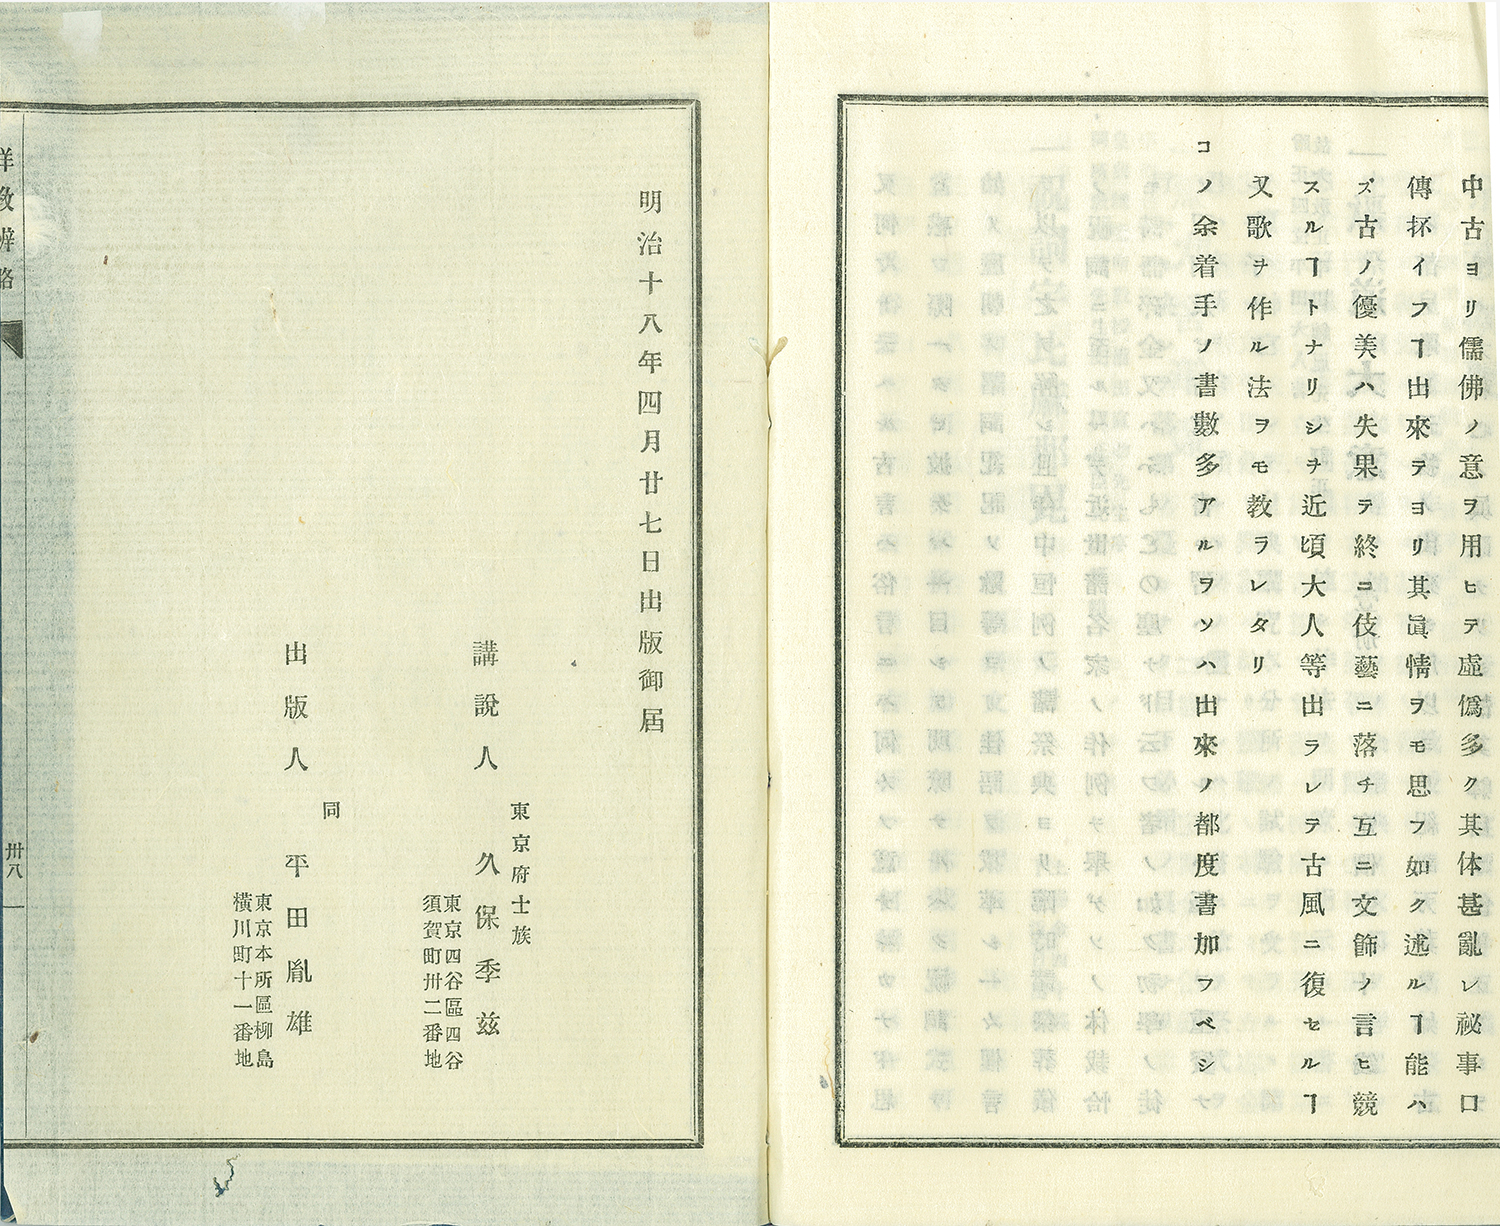 中古ヨリ儒佛ノ意ヲ用ヒテ虚僞多ク其体甚亂レ祕事口
傳抔イフヿ出來テヨリ其眞情ヲモ思フ如ク述ルヿ能ハ
ズ古ノ優美ハ失果テ終ニ伎藝ニ落チ互ニ文飾ノ言ヒ競
スルヿトナリシヲ近頃大人等出ラレテ古風ニ復セルヿ
又歌ヲ作ル法ヲモ教ラレタリ
コノ余着手ノ書數多アルヲソハ出來ノ都度書加フベシ
明治十八年四月廿七日出版御届
東京府士族
講說人 久保季茲
東京四谷區四谷
須賀町卅二番地
同
出版人 平田胤雄
東京本所區柳島
横川町十一番地
教辨略
卅八